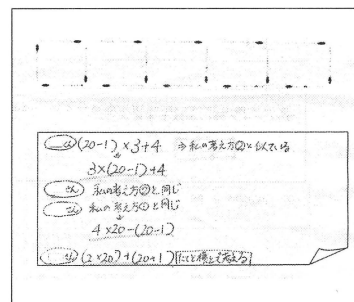 さん (20-1)×3+4 ⇒ 私の考え方②と似ている
3×(20-1)+4
さん 私の考え方②と同じ
さん 私の考え方①と同じ
4×20-(20-1)
さん (2×20)+(20+1) たてと横とで考える